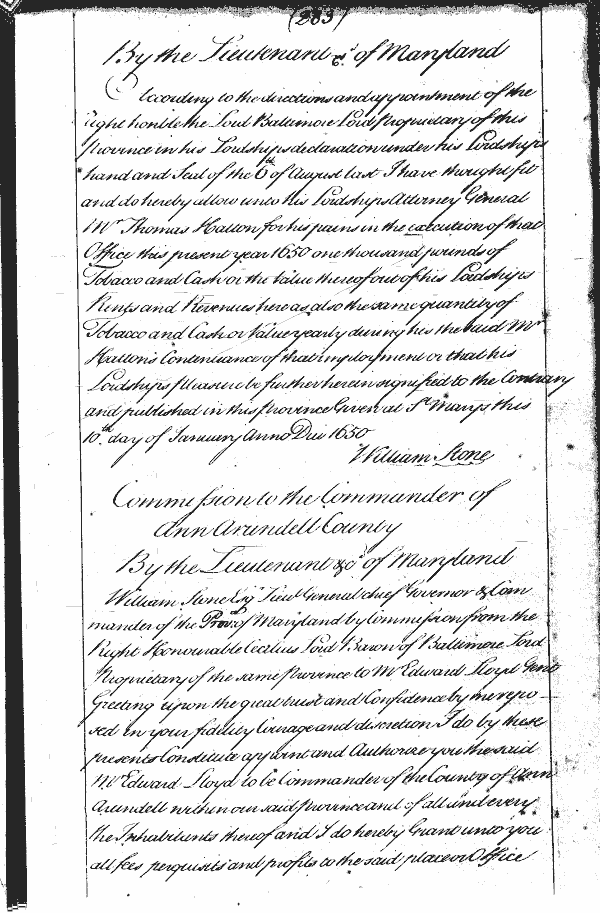 (283)
By the Lieutenant &c. of Maryland
According to the directions and appointment of the
Right honble the Lord Baltimore Lord Proprietary of this
Province in his Lordships declaration under his Lordships
hand and Seal of the 6th of August last I have thought fit
and do hereby allow unto his Lordships Attorney General
Mr Thomas Hatton for his pains in the execution of that
Office this present year 1650 one thousand pounds of
Tobacco and Cask or the Value thereof out of his Lordships
Rents and Revenues here as also the same quantity of
Tobacco and Cask or Value yearly during his the said Mr
Hatton's Continuance of that imployment or that his
Lordships pleasure be further herein signified to the Contrary
and published in this Province Given at St Marys this
10th day of January Anno Dni 1650
William Stone
Commission to the Commander of
Ann Arundell County
By the Lieutenant &c. of Maryland
William Stone Esqr Lieut General chief Governor & Com
mander of the Prov: of Maryland by Commission from the
Right Honourable Cecilius Lord Baron of Baltimore Lord
Proprietary of the same Province to Mr Edward Lloyd Gent
Greeting upon the great trust and Confidence by me repo
sed in your fidelity Courage and discretion I do by these
presents Constitute appoint and Authorize you the said
Mr Edward Lloyd to be Commander of the County of Ann
Arundell within our said Province and of all and every
the Inhabitants thereof and I do hereby Grant unto you
all fees perquisits and profits to the said place or Office